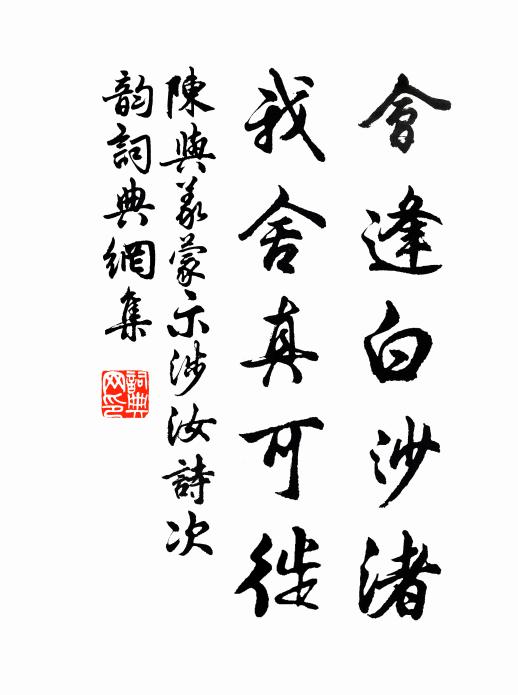 會逢白沙渚
我舍真可徙
陳與義蒙示涉汝詩次
韵詞典網集
詞典網印